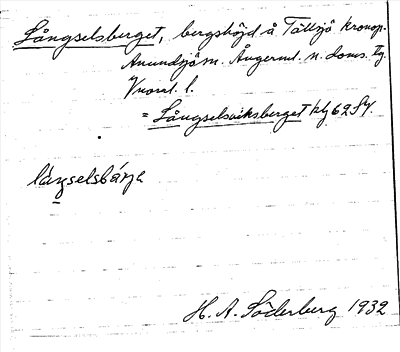 Långselsberget, bergshöjd å Tällsjö kronop.
Anundsjö sn. Ångerml. n. doms. tg.
Vnorrl. l.
= Långselsviksberget ktg 62 SV.
långselsbärje
H. A. Söderberg 1932